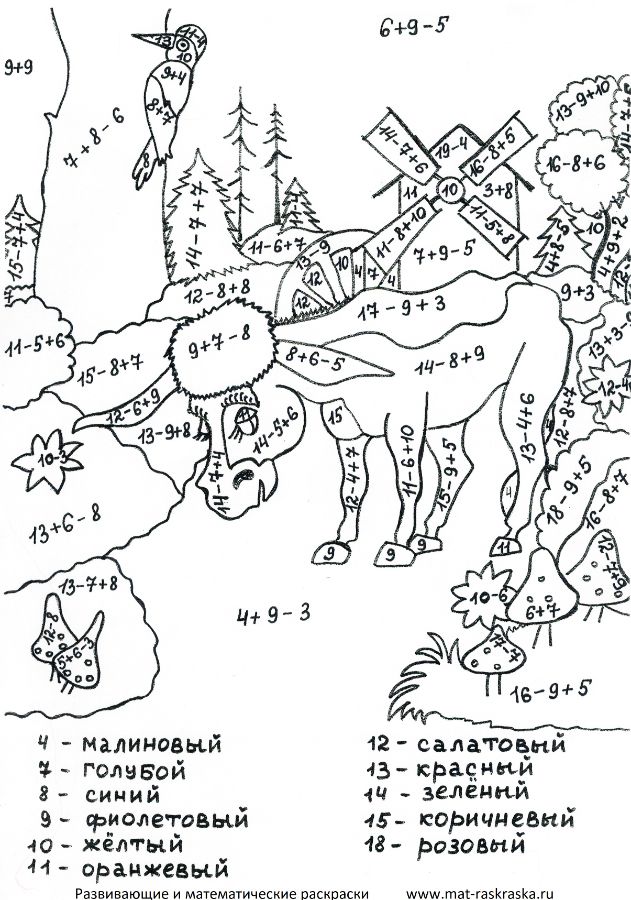 6+9-5
9+9
11-4
13
10
9+4
8+7
7+8-6
8
13-9+10
14-7+6
19-4
16-8+5
16-8+6
11
10
3+8
14-7+7
15-7+4
11-7
11-6+7
13-9
11-8+10
11-5+8
7+9-5
4+8-5
10
4+9+2
12
10
4
7
4
12
12-8+8
17-9+3
9+3
7
11-5+6
9+7-8
15-8+7
8+6-5
14-8+9
12-6+9
13-9+8
14-5+6
15
13-4+6
12-8+7
10-3
11-7+4
12-4+7
11-6+10
15-9+5
4
18-9+5
16-8+7
13+6-8
9
9
9
11
13-7+8
10-6
6+7
12-8
5+6-3
4+9-3
17-7
16-9+5
4 - малиновый
7 - голубой
8 - синий
9 - фиолетовый
10 - жёлтый
11 - оранжевый
12 - салатовый
13 - красный
14 - зелёный
15 - коричневый
18 - розовый
Развивающие и математические раскраски www.mat-raskraska.ru